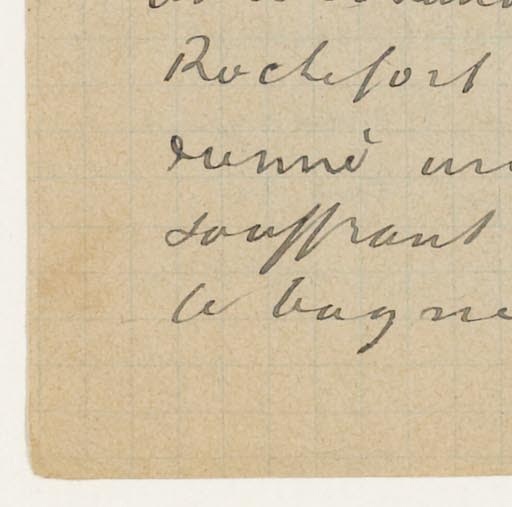 Rochefort
donné un
souffrant
le bagne